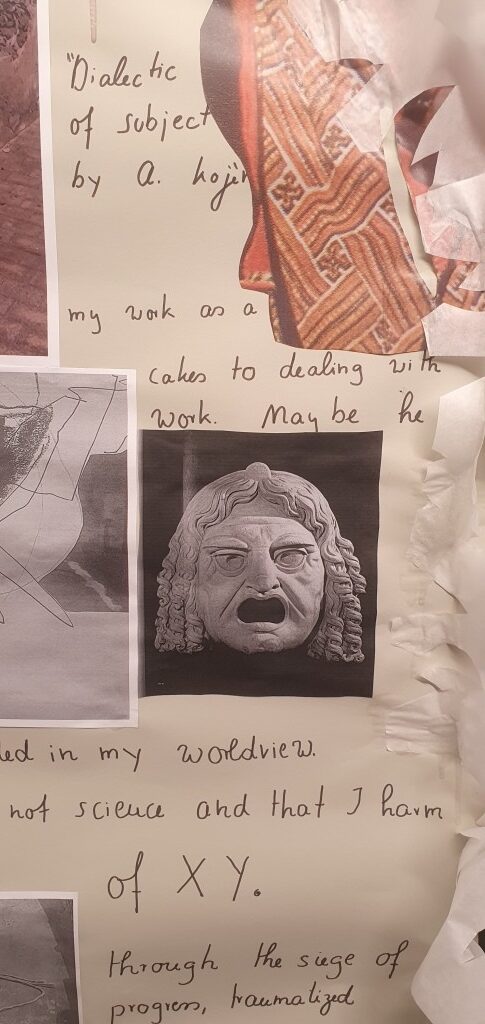 "Dialectic
of subject
by A. Kojèv
my work as a
cakes to dealing with
work. Maybe he
ded in my worldview.
not science and that I harm
of XY.
through the siege of
progress, traumatized